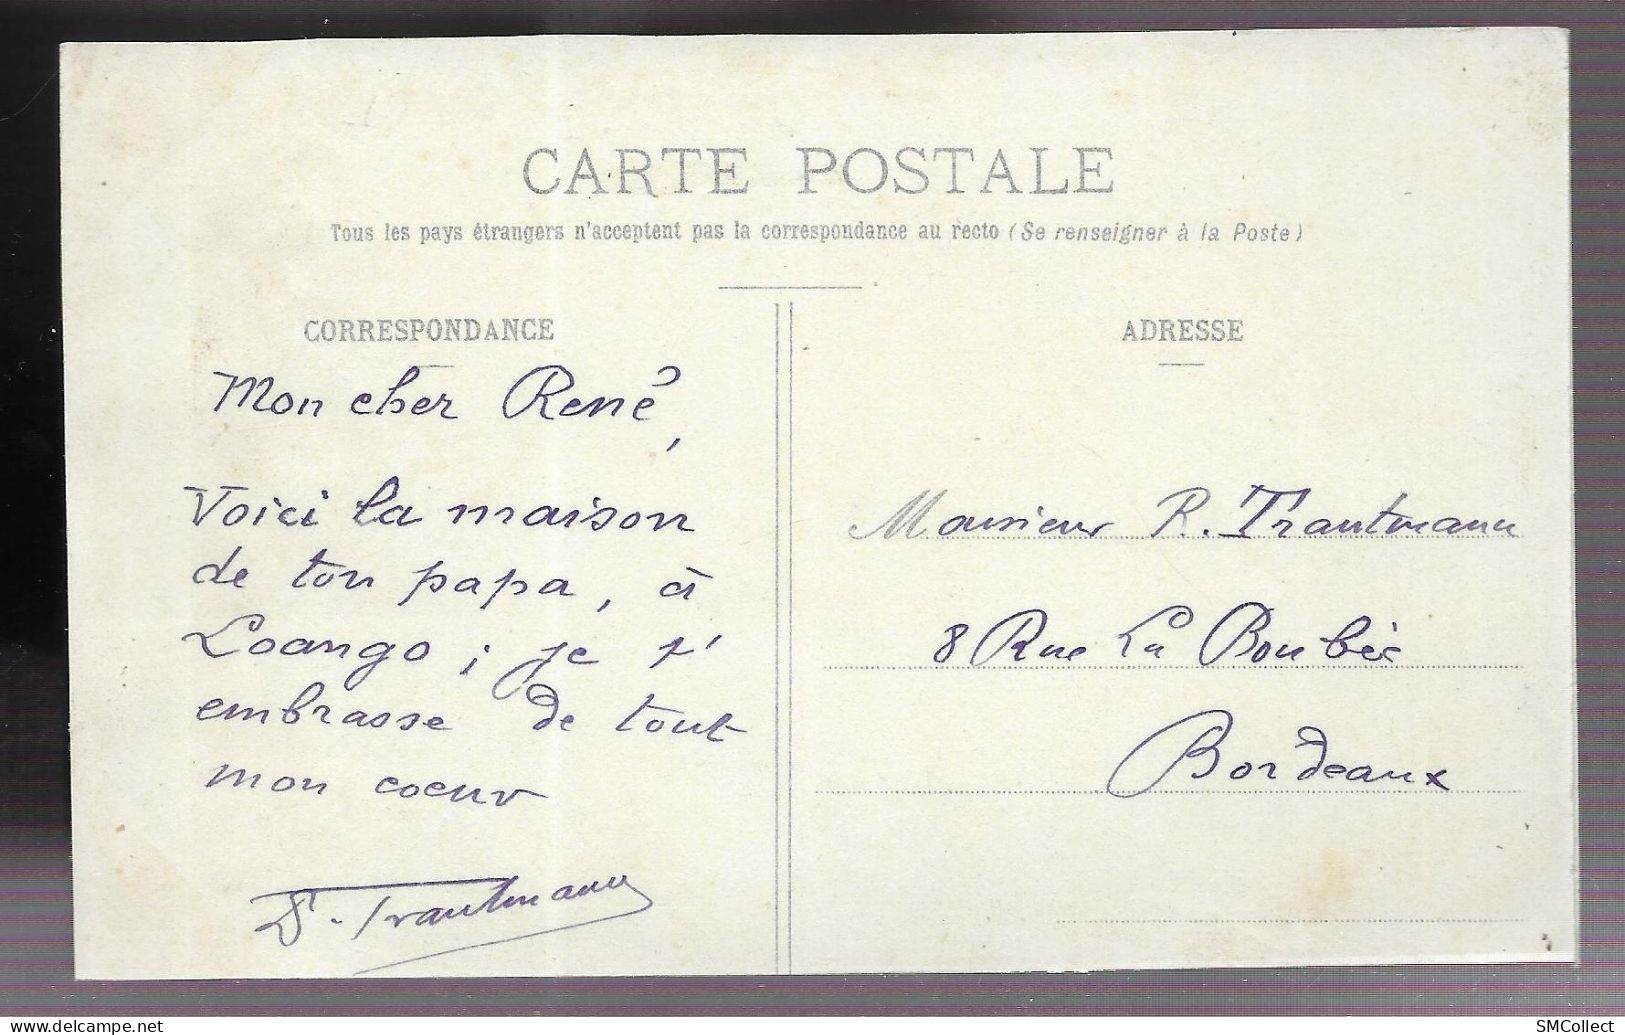 CARTE POSTALE
Tous les pays étrangers n'acceptent pas la correspondance au recto (Se renseigner à la Poste)
CORRESPONDANCE
Mon cher René,
Voici la maison
de ton papa, à
Loango; je t'
embrasse de tout
mon coeur
Trautmann
ADRESSE
Monsieur R. Trautmann
8 Rue La Boubée
Bordeaux
www.delcampe.net
SMCollect